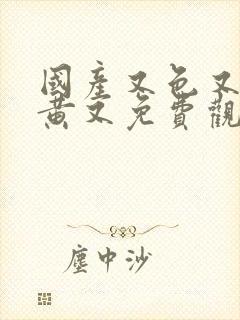 國產又色又
黃又免費觀
塵中沙